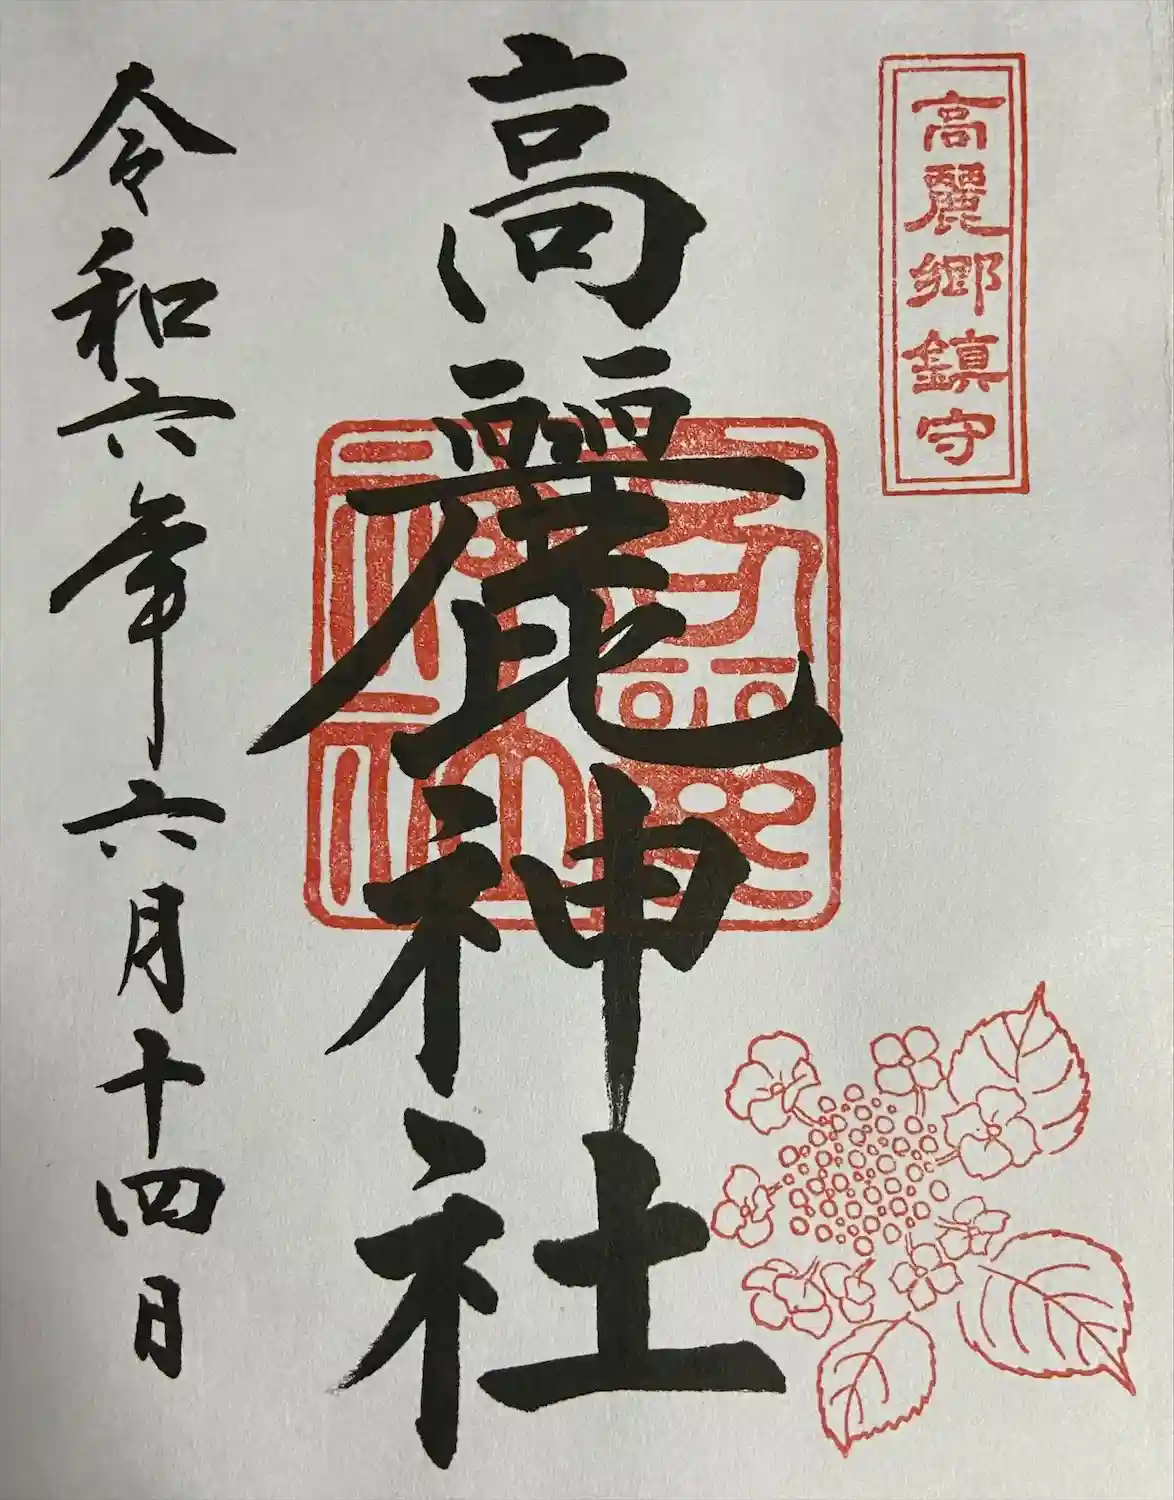 高麗郷鎮守
高麗神社
令和六年六月十四日